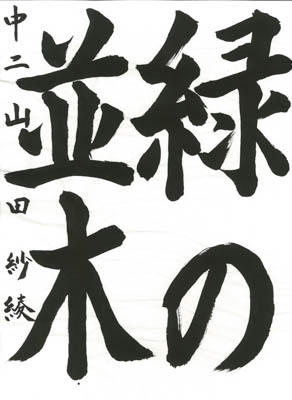 緑の
並木
中二山田紗綾